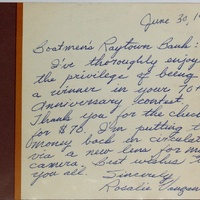 June 30, 19
Boatmen's Raytown Bank:
I've thoroughly enjoy
the privilege of being
a winner in your 70th
Anniversary Contest.
Thank you for the check
for $70. I'm putting t
money back in circulat
via a new lens for m
camera. Best wishes t
you all.
Sincerely
Rosalie